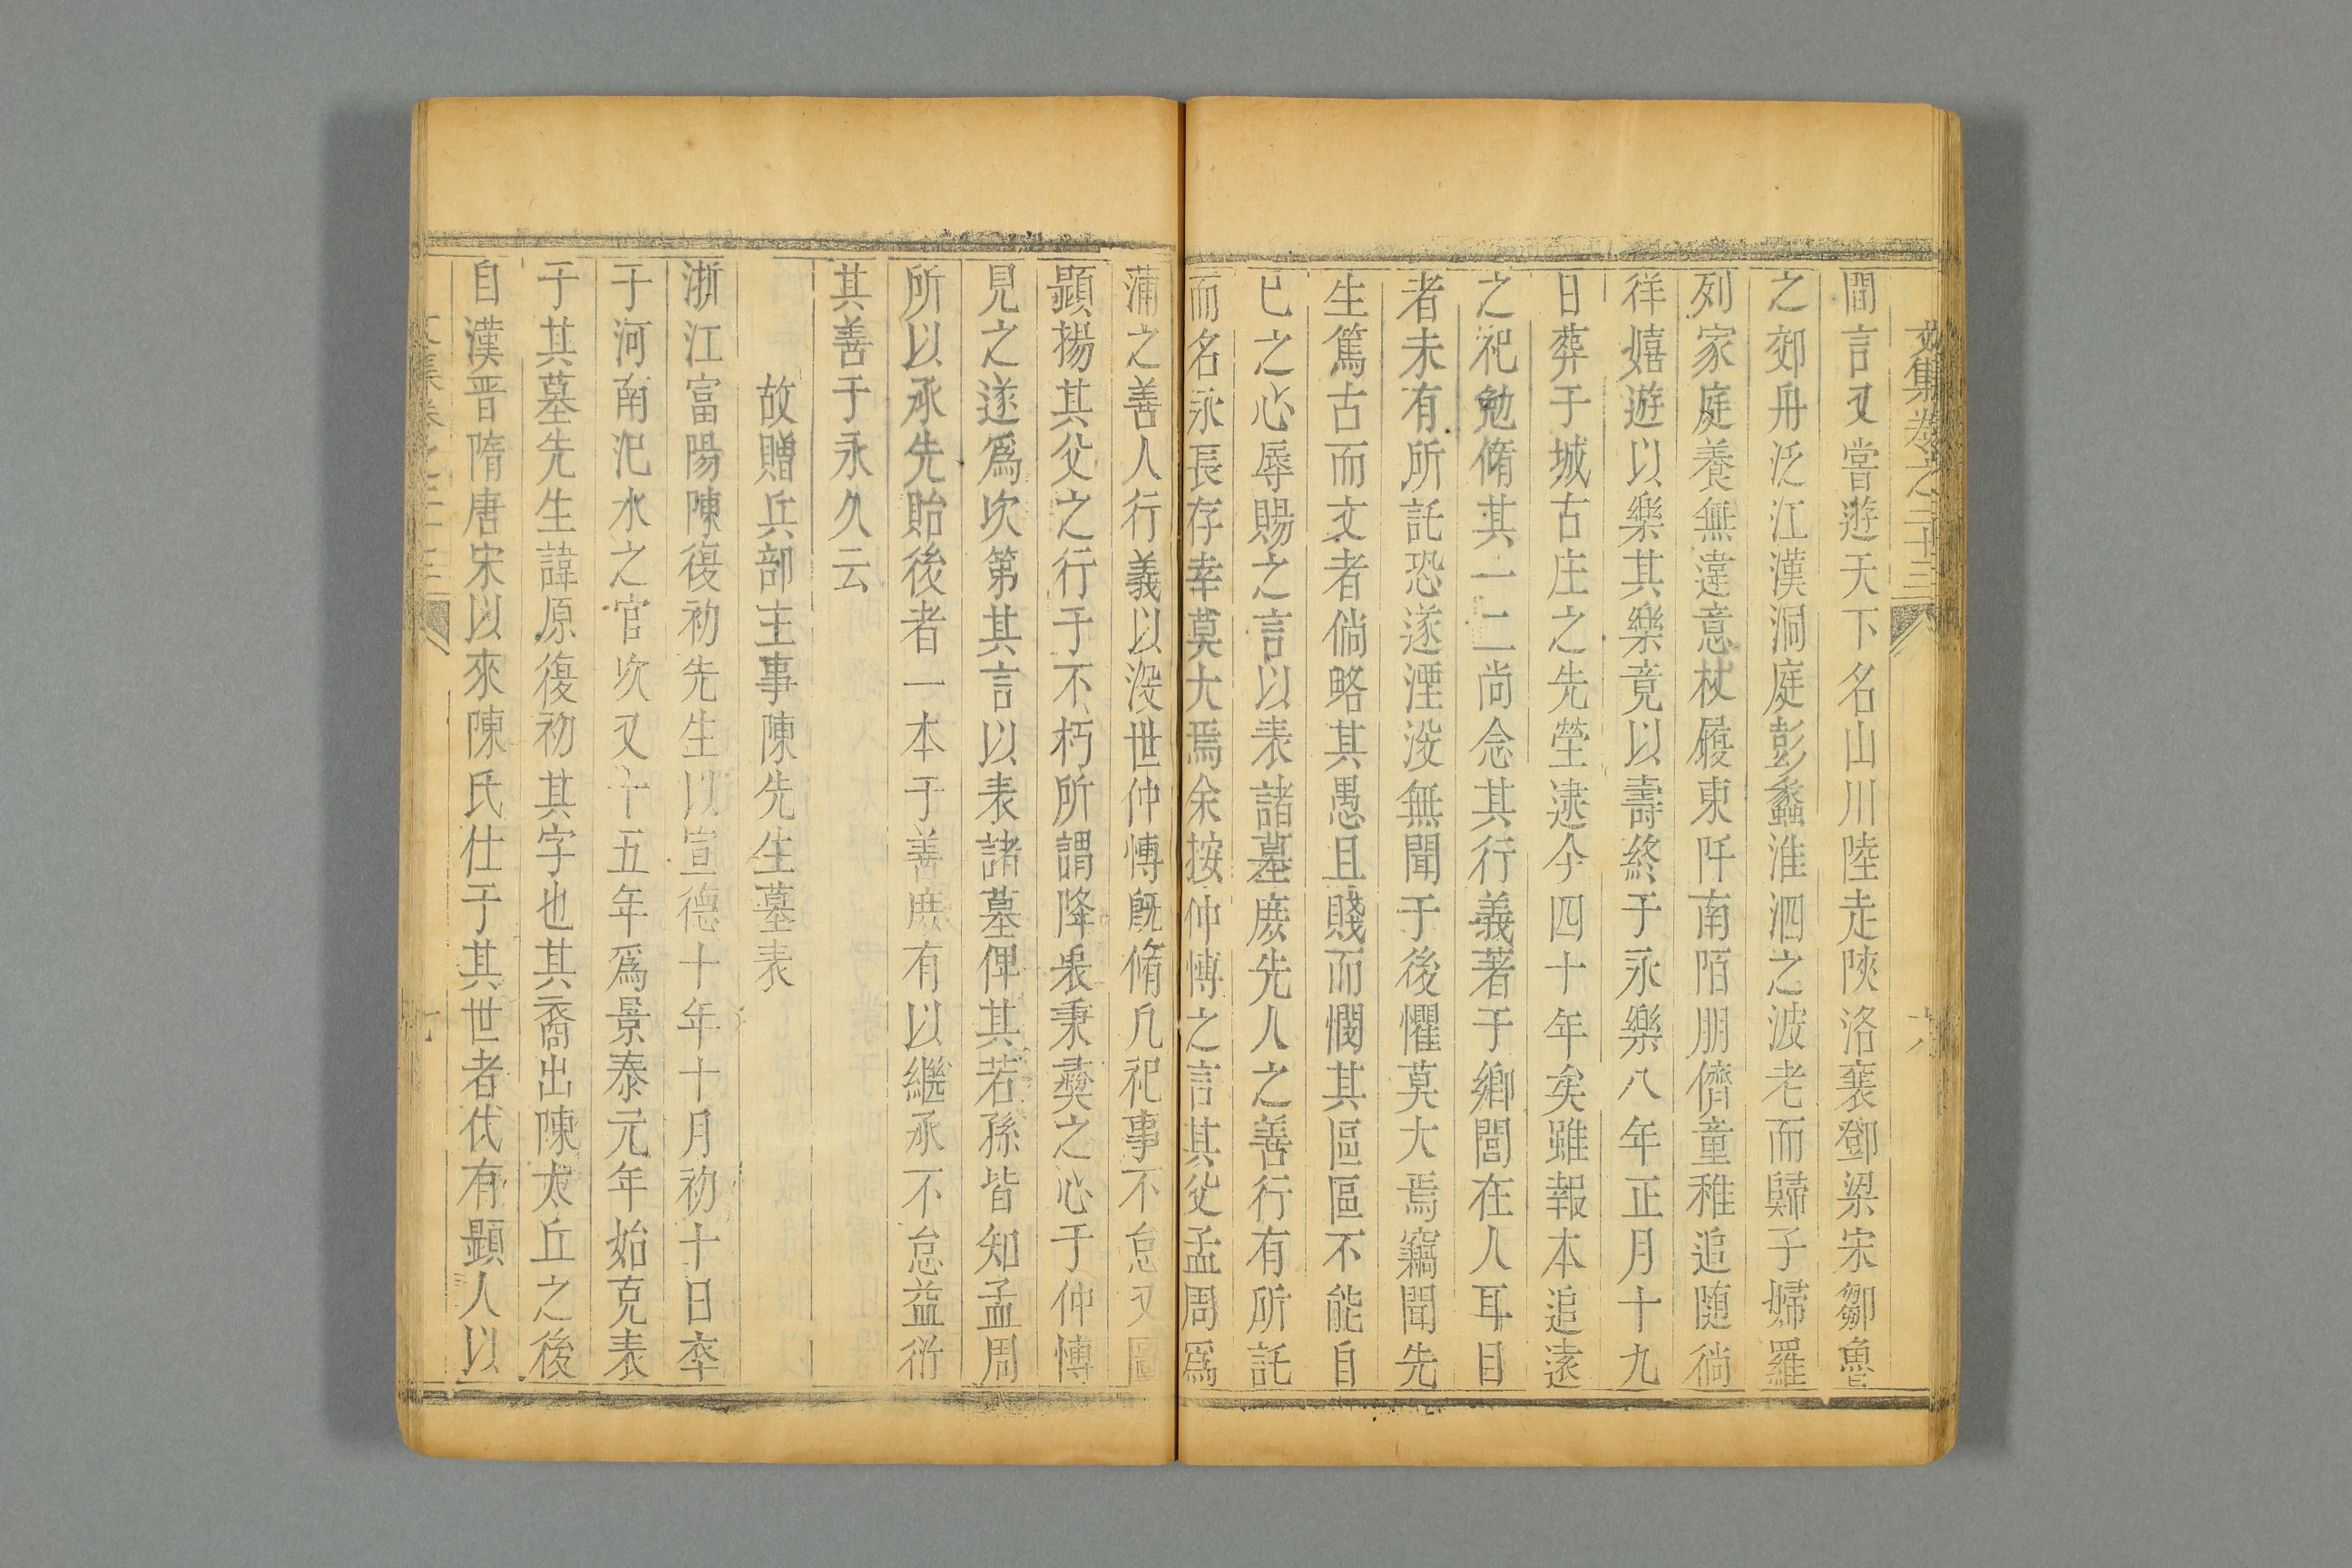 文集卷之二十三
間言又嘗遊天下名山川陸走陝洛襄鄧梁宋鄒魯
之郊舟泛江漢洞庭彭蠡淮泗之波老而歸子婦羅
列家庭養無違意杖履東阡南陌朋儕童稚追随徜
徉嬉遊以樂其樂竟以壽終于永樂八年正月十九
日葬于城古庄之先塋逮今四十年矣雖報本追遠
之祀勉脩其一二尚念其行義著于鄉閭在人耳目
者未有所託恐遂湮没無聞于後懼莫大焉竊聞先
生篤古而文者倘略其愚且賤而憫其區區不能自
已之心辱賜之言以表諸墓庶先人之善行有所託
而名永長存幸莫大焉余按仲愽之言其父孟周爲
蒲之善人行義以没世仲愽旣脩凡祀事不怠又
顯揚其父之行于不朽所謂降衷秉彛之心于仲愽
見之遂爲次第其言以表諸墓俾其若孫皆知孟周
所以承先貽後者一本于善庶有以繼承不怠益衍
其善于永久云
故贈兵部主事陳先生墓表
浙江富陽陳復初先生以宣德十年十月初十日卒
于河南汜水之官次又十五年爲景泰元年始克表
于其墓先生諱原復初其字也其裔出陳太丘之後
自漢晋隋唐宋以來陳氏仕于其世者代有顯人以